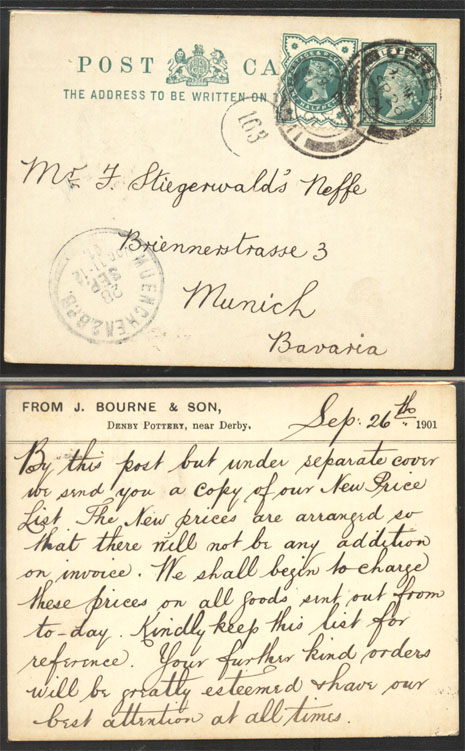 POST CA
THE ADDRESS TO BE WRITTEN ON
163
Mr F. Stiegerwald's Neffe
Briennerstrasse 3
Munich
Bavaria
MUENCHEN 2 B.P.B.
28
SEP
FROM J. BOURNE & SON,
DENBY POTTERY, near Derby,
Sep: 26th 1901
By this post but under separate cover
we send you a copy of our New Price
List. The New prices are arranged so
that there will not be any addition
on invoice. We shall begin to charge
these prices on all goods sent out from
to-day. Kindly keep this list for
reference. Your further kind orders
will be greatly esteemed & have our
best attention at all times.